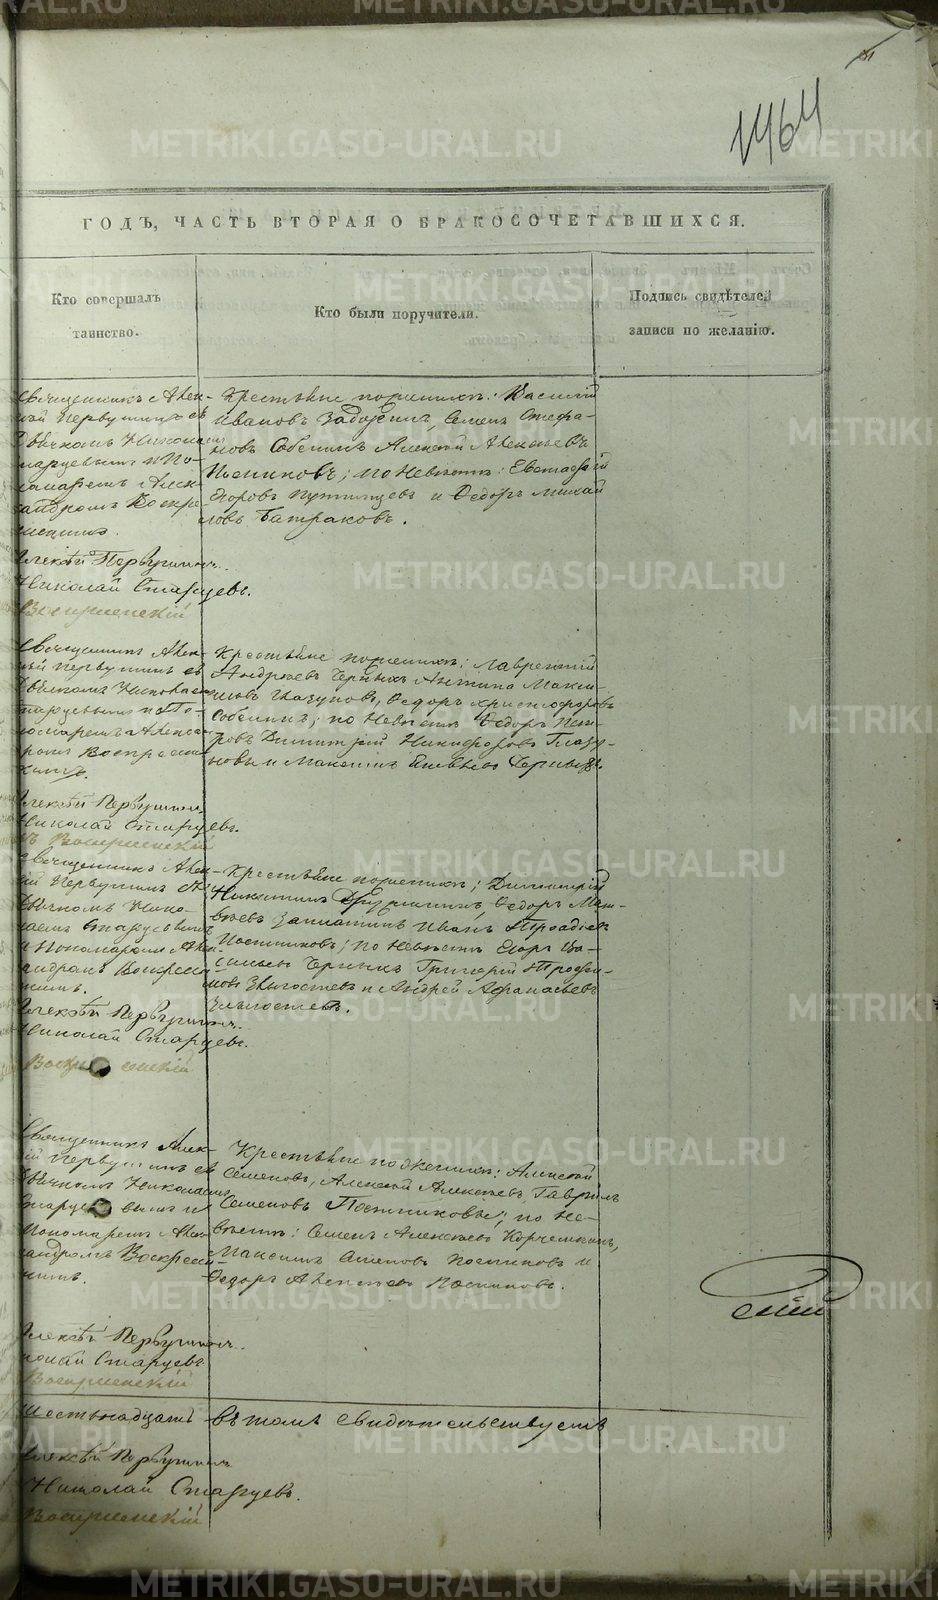 1464
ГОДЪ, ЧАСТЬ ВТОРАЯ О БРАКОСОЧЕТАВШИХСЯ.
Кто совершалъ
таинство.
Кто были поручители.
Подпись свидѣтелей
записи по желанію.
Священникъ Алек-
сѣй Первушинъ съ
Дьячкомъ Никола
старцевымъ и По-
номаремъ Алек-
сандромъ Воскре-
Алексѣй Первушинъ.
Николай Старцевъ.
Воскресенскій
Крестьяне по женихѣ: Василій
Ивановъ Семенъ Стефа-
новъ Собенинъ Алексѣй Алексѣевъ
Посниковъ; по невѣстѣ: Евстафій
Егоровъ и Ѳедоръ Михай
ловъ Батраковъ.
Священникъ Алек-
сѣй Первушинъ съ
Дьячкомъ Николаем
Старцевымъ и По-
номаремъ Алекса-
дромъ Воскресен
скимъ.
Алексѣй Первушинъ.
Николай Старцевъ.
Воскресенскій
Крестьяне по женихѣ; Лаврентій
Андреевъ Черныхъ Антипа Макси-
мовъ Глазуновъ, Ѳедоръ Христофоровъ
Собенинъ; по невѣстѣ Ѳедоръ Пет-
ровъ Димитрій Никифоровъ Глазу-
новы и Максимъ Черныхъ.
Священникъ Алек-
сѣй Первушинъ съ
Дьячкомъ Нико-
лаемъ Старцевымъ
и Пономаремъ Алек-
сандромъ Воскресен
скимъ.
Алексѣй Первушинъ.
Николай Старцевъ.
Воскресенскій
Крестьяне по женихѣ; Димитрій
Никитинъ Ѳедоръ Мат-
вѣевъ Иванъ
Постниковъ; по невѣстѣ Егоръ Ва-
сильевъ Черныхъ Григорій Трофи-
мовъ и Андрей Афанасьевъ
Священникъ Алек-
сѣй Первушинъ съ
Дьячкомъ Николаемъ
Старцевымъ и
Пономаремъ Алек-
сандромъ Воскресен
скимъ.
Алексѣй Первушинъ.
Николай Старцевъ
Воскресенскій
Крестьяне по женихѣ: Алексѣй
Семеновъ, Алексѣй Алексѣевъ, Гаврилъ
Семеновъ Постниковы; по не-
вѣстѣ: Семенъ Алексѣевъ
Максимъ Посниковъ и
Ѳедоръ Алексѣевъ Посниковъ.
скій
Шестьнадцать въ томъ свидѣтельствуемъ
Алексѣй Первушинъ
Николай Старцевъ.
Воскресенскій
METRIKI.GASO-URAL.RU